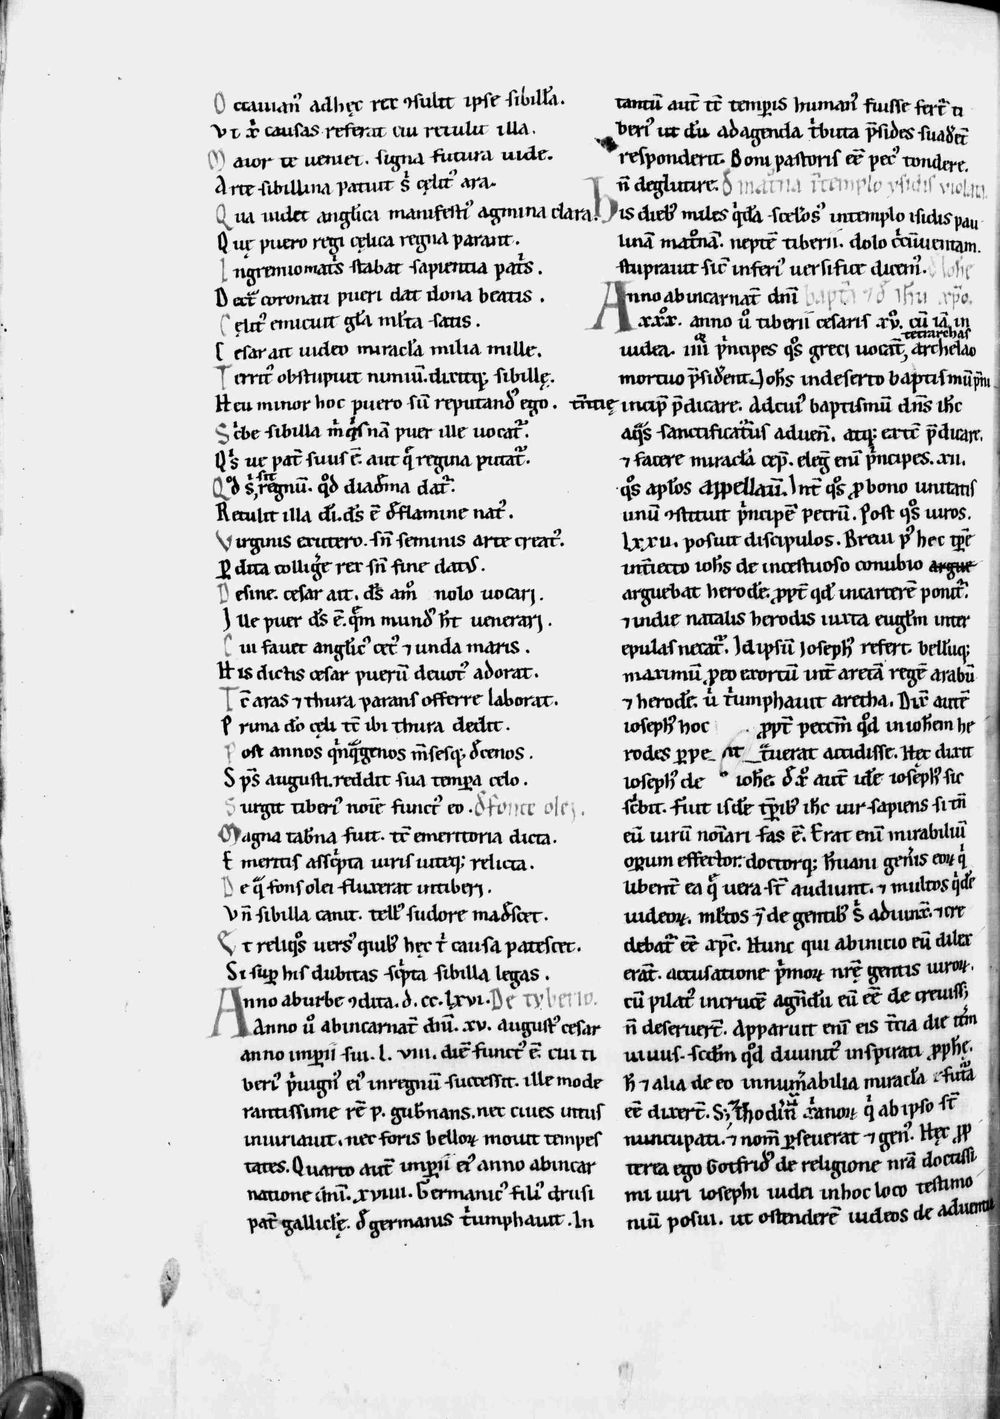 Octauian᷒ adhęc rex ↄsulit ipse sibilla.
Vt xp̄ causas referat cui retulit illa.
Maior te ueniet. signa futura uide.
Arte sibillina patuit s; cęlit᷒ ara.
Qua uidet anglica manifesti᷒ agmina clara.
Quę puero regi cęlica regna parant.
Ingremio mat's stabat sapientia pat's.
Dext' coronati pueri dat dona beatis.
Cęlit᷒ emicuit gl̄a ml̄ta satis.
Cesar ait uideo miracl̄a milia mille.
Territ᷒ obstupuit nimiū. dixitq; sibillę.
Heu minor hoc puero sū reputand᷒ ego.
Sc'be sibilla m' q's nā puer ille uocat᷒.
Q's ue pat̄ suus ē. aut q̄ regina putat᷒.
Qd̊ s; sit regnū. qd̊ diadēma dat᷒.
Retulit illa dī. ds̄ ē de flamine nat᷒.
Virginis exutero. sn̄ seminis arte creat᷒.
Pdita colliḡe rex sn̄ fine dat᷒.
Desine. cesar ait. ds̄ am᷒ nolo uocari.
Ille puer ds̄ ē. quē mund᷒ ht̄ uenerari.
Cui fauet anglic᷒ cet᷒ ⁊ unda maris.
His dictis cesar puerū deuot᷒ adorat.
Tc̄ aras ⁊ thura parans offerre laborat.
Prima do cęli tc̄ ibi thura dedit.
Post annos q'nq̄genos m̄sesq; dcenos.
Sps̄ augusti. reddit sua tempora celo.
Surgit tiberi᷒ noīe funct᷒ eo. De fonte olei.
Magna tab̄na fuit. tc̄ emeritoria dicta.
Emeritis ass̄cpta uiris uiteq; relicta.
De q̄ fons olei fluxerat intiberi.
Vn̄ sibilla canit. tell᷒ sudore madescet.
Et reliqos uers᷒ quib᷒ hęc t' causa patescet.
Si sup̄ his dubitas sc'pta sibilla legas.
Anno aburbe ↄdita. d. cc. lxvi. De tyberio.
Anno ů abincarnat̄ dn̄i. xv. august᷒ cesar
anno imp̄ii sui. l. viii. diē funct᷒ ē. cui ti
beri᷒ p'uign᷒ ei᷒ inregnū successit. ille mode
rantissime rē p. gub̄nans. nec ciues intus
iniuriauit. nec foris belloꝝ mouit tempes
tates. Quarto aut̄ imp̄ii ei᷒ anno abincar
natione dn̄i. xviiii. Germanic᷒ fili᷒ drusi
pat̄ galliclę. de germanis t'umphauit. In
tantū aut̄ tc̄ temp̄is human᷒ fuisse fert᷒ ti
beri᷒ ut cū adagenda t'buta p̄sides suadēt
responderit. Boni pastoris eē pec᷒ tondere.
n̄ deglutire. De mat'na ī templo ysidis violata.
His dieb᷒ miles q'dā scelos᷒ intemplo isidis pau
linā matronā. neptē tiberii. dolo c'cūuentam.
stuprauit sic̄ inferi᷒ uersifice dicem᷒. De iohe
Anno abincarnat̄ dn̄i bapt̄a ⁊ de ih̄u xp̄o.
xxx. anno ů tiberii cesaris xv. cū iā in
iudea. iiii p'ncipes qos greci uocāt, tetrarchas archelao
mortuo p̄sident. Ioh̄s indeserto baptismū pm̄
t̄nitię incip̄ p̄dicare. Adcui᷒ baptismū dn̄s ih̄c
aq̄s sanctificat᷒us aduen̄. atq; extc̄ p̄dicare.
⁊ facere miracl̄a cep̄. eleḡ enī p'ncipes. xii.
qos apl̄os appellau̅. Int̄ qos ꝓbono unitatis
unū ↄstituit p'ncipē petrū. Post qos uiros.
lxxii. posuit discipulos. Breui p᷒ hec tp̄e
int̄iecto ioh̄s de incestuoso conubio argue
arguebat herodē. ꝓpt̄ qd̄ incarcerē ponit᷒.
⁊ indie natalis herodis iuxta eugl̄m inter
epulas necat᷒. Id ipsū ioseph᷒ refert. bellūq;
maximū ꝓ eo exortū int̄ aretā regē arabū
⁊ herodē. ů t'umphauit aretha. Dix̄ autē
ioseph᷒ hoc ꝓpt̄ peccm̄ qd̊ in ioh̄em he
rodes ꝑpe t̄uerat accidisse. Hęc dixit
ioseph᷒ de ioh̄e. de xp̄ aut̄ idē ioseph᷒ sic
sc'bit. Fuit isdē tp̄ib᷒ ih̄c uir sapiens si tn̄
eū uirū noīari fas ē. Erat enī mirabiliū
operum effector. doctorq; hūani gen̄is eoꝝ q'
libent̄ ea q̄ uera st̄ audiunt. ⁊ multos q'dē
iudeoꝝ. ml̄tos ⁊ de gentib᷒ s; adiunx̄. ⁊ cre
debat᷒ eē xp̄c. Hunc qui abinicio eū dilex
erāt. accusatione p'moꝝ nrē gentis uiroꝝ.
cū pilat᷒ incrucē agn̄dū eū eē de creuiss;
n̄ deseruer̄t. Apparuit enī eis t̄cia die itm̄
uiuus. scdm̄ qd̊ diuinit᷒ inspirati ꝓphę.
h̄ ⁊ alia de eo innum̄abilia miracl̄a futūa
eē dixer̄t. S; ⁊ ho din̄ xp̄ianoꝝ q' ab ipso st̄
nuncupati. ⁊ nom̄ ꝑseuerat ⁊ gen᷒. Hęc ꝓp
terea ego Gotfrid᷒ de religione nrā doctissi
mi uiri iosephi iudei inhoc loco testimo
niū posui. ut ostenderē iudeos de aduentu